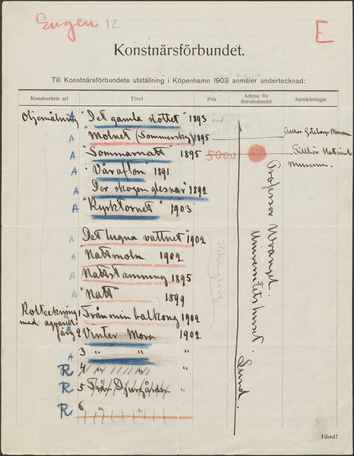 Eugen 12
E
Konstnärsförbundet.
Till Konstnärsförbundets utställning i Köpenhamn 1903 anmäler undertecknad:
Konstverkets art Titel Pris Adress för återsändandet Anmärkningar
Oljemålning "Det gamla slottet" 1893
A "Molnet (Sommarsky)" 1895
A "Sommarnatt 1895 5000
A "Vårafton" 1891 Museum.
A "Der skogen glesnar" 1892
A "Kyrktornet" 1903
A Det lugna vattnet" 1902
A Nattmoln 1902
A Nattstämning 1895
A "Natt" 1899
Från min balkong 1902
med
färg 2 Vinter Morn 1902
A 3 " "
R 4 " "
R 5 Från Djurgården
R 6
Professor Wrangel.
Universitetshuset.
Lund.